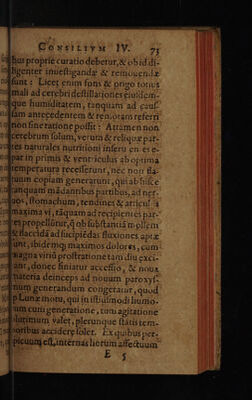 CONSILIVM IV. 73
bus proprie curatio debetur, & ob id di-
ligenter inuestigandæ & remouendæ
sunt: Licet enim fons & origo totius
mali ad cerebri destillationes eiusdem-
que humiditatem, tanquam ad caus-
sam antecedentem & remotam referri
non sine ratione possit: Attamen non
cerebrum solum, verum & reliquæ par-
tes naturales nutritioni
par in primis & ventriculus ab optima
temperatura recesserunt, nec non fla-
tuum copiam generarunt, qui ab hisce
tanquam mādantibus partibus, ad ner-
uos, stomachum, tendines & articulos
maxima vi, tāquam ad recipientes par-
tes propelluntur, q̃ ob substantiā mollem
& flaccidā ad suscipiēdas fluxiones aptæ
sunt, ibidemq; maximos dolores, cum
magna viriū prostratione tam diu exci-
tant, donec finiatur accessio, & noua
materia deinceps ad nouum paroxys-
mum generandum congeratur, quod
p Lunæ motu, qui in istiusmodi humo-
rum cum generatione, tum agitatione
plurimum valet, plerunque statis tem-
poribus accidere solet. Ex quibus per-
spicuum est, internas horum affectuum
E 5